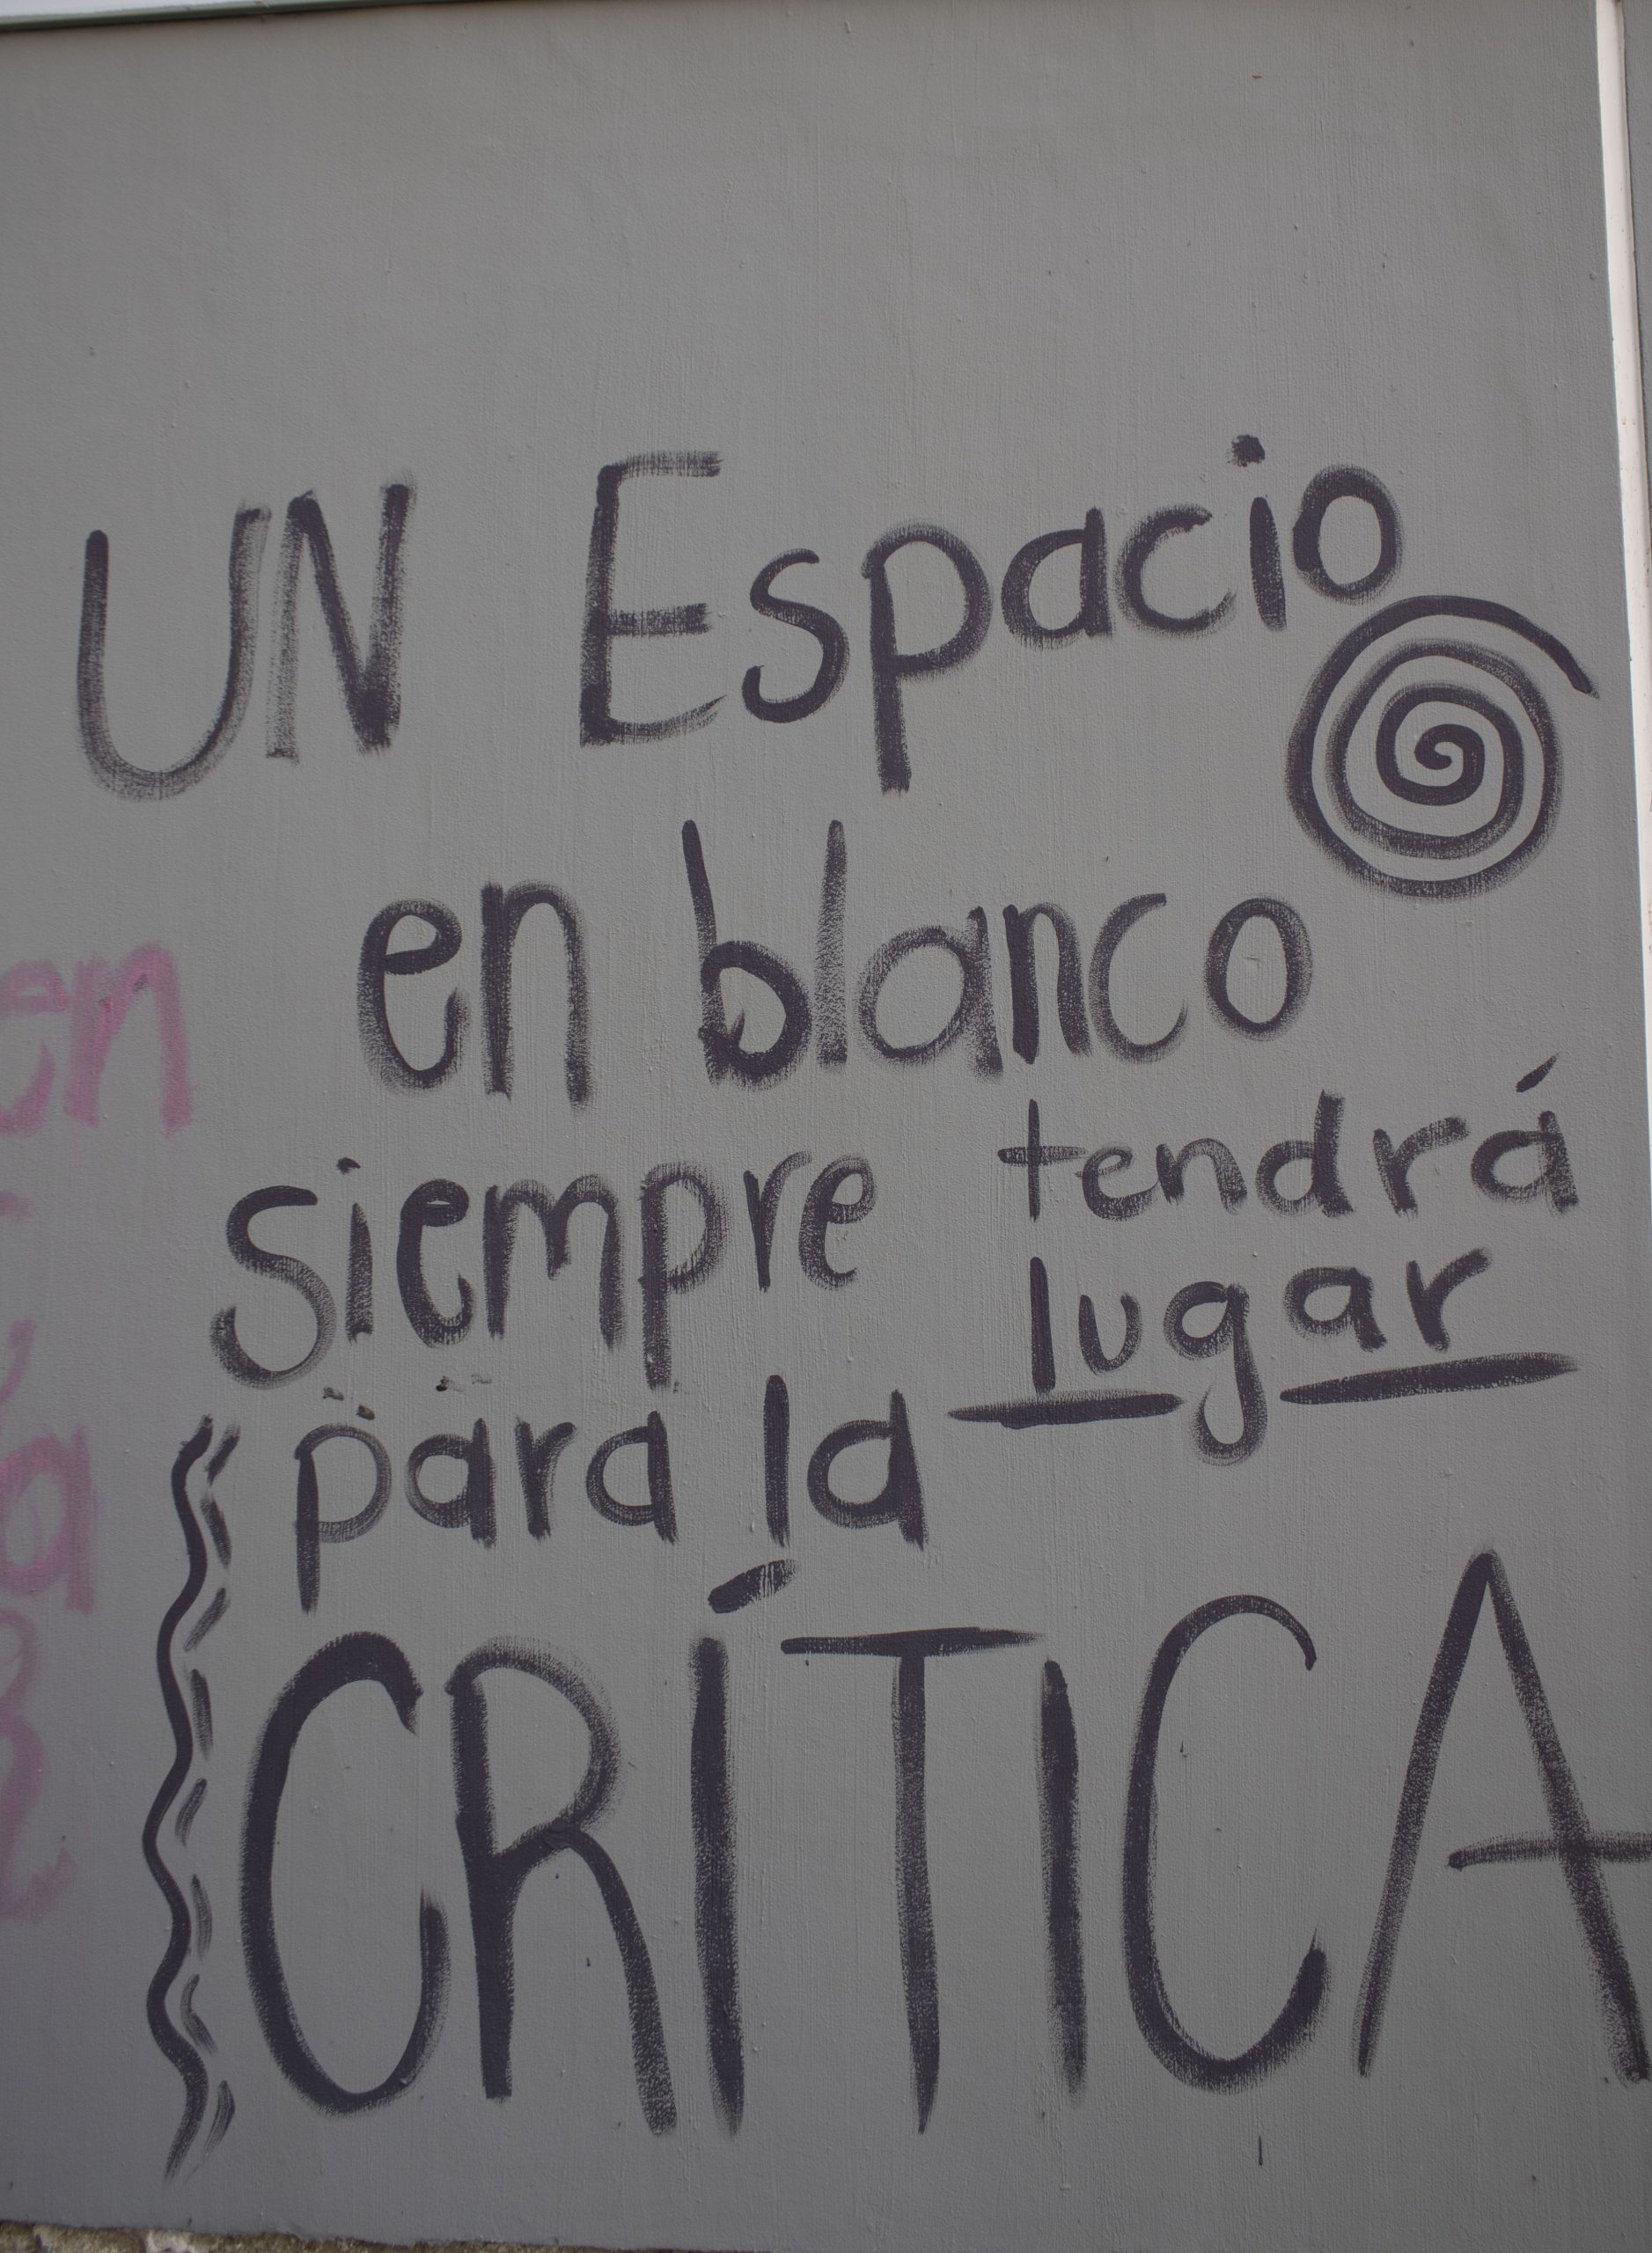 UN Espacio
en blanco
siempre tendrá
lugar
para la
CRÍTICA
en